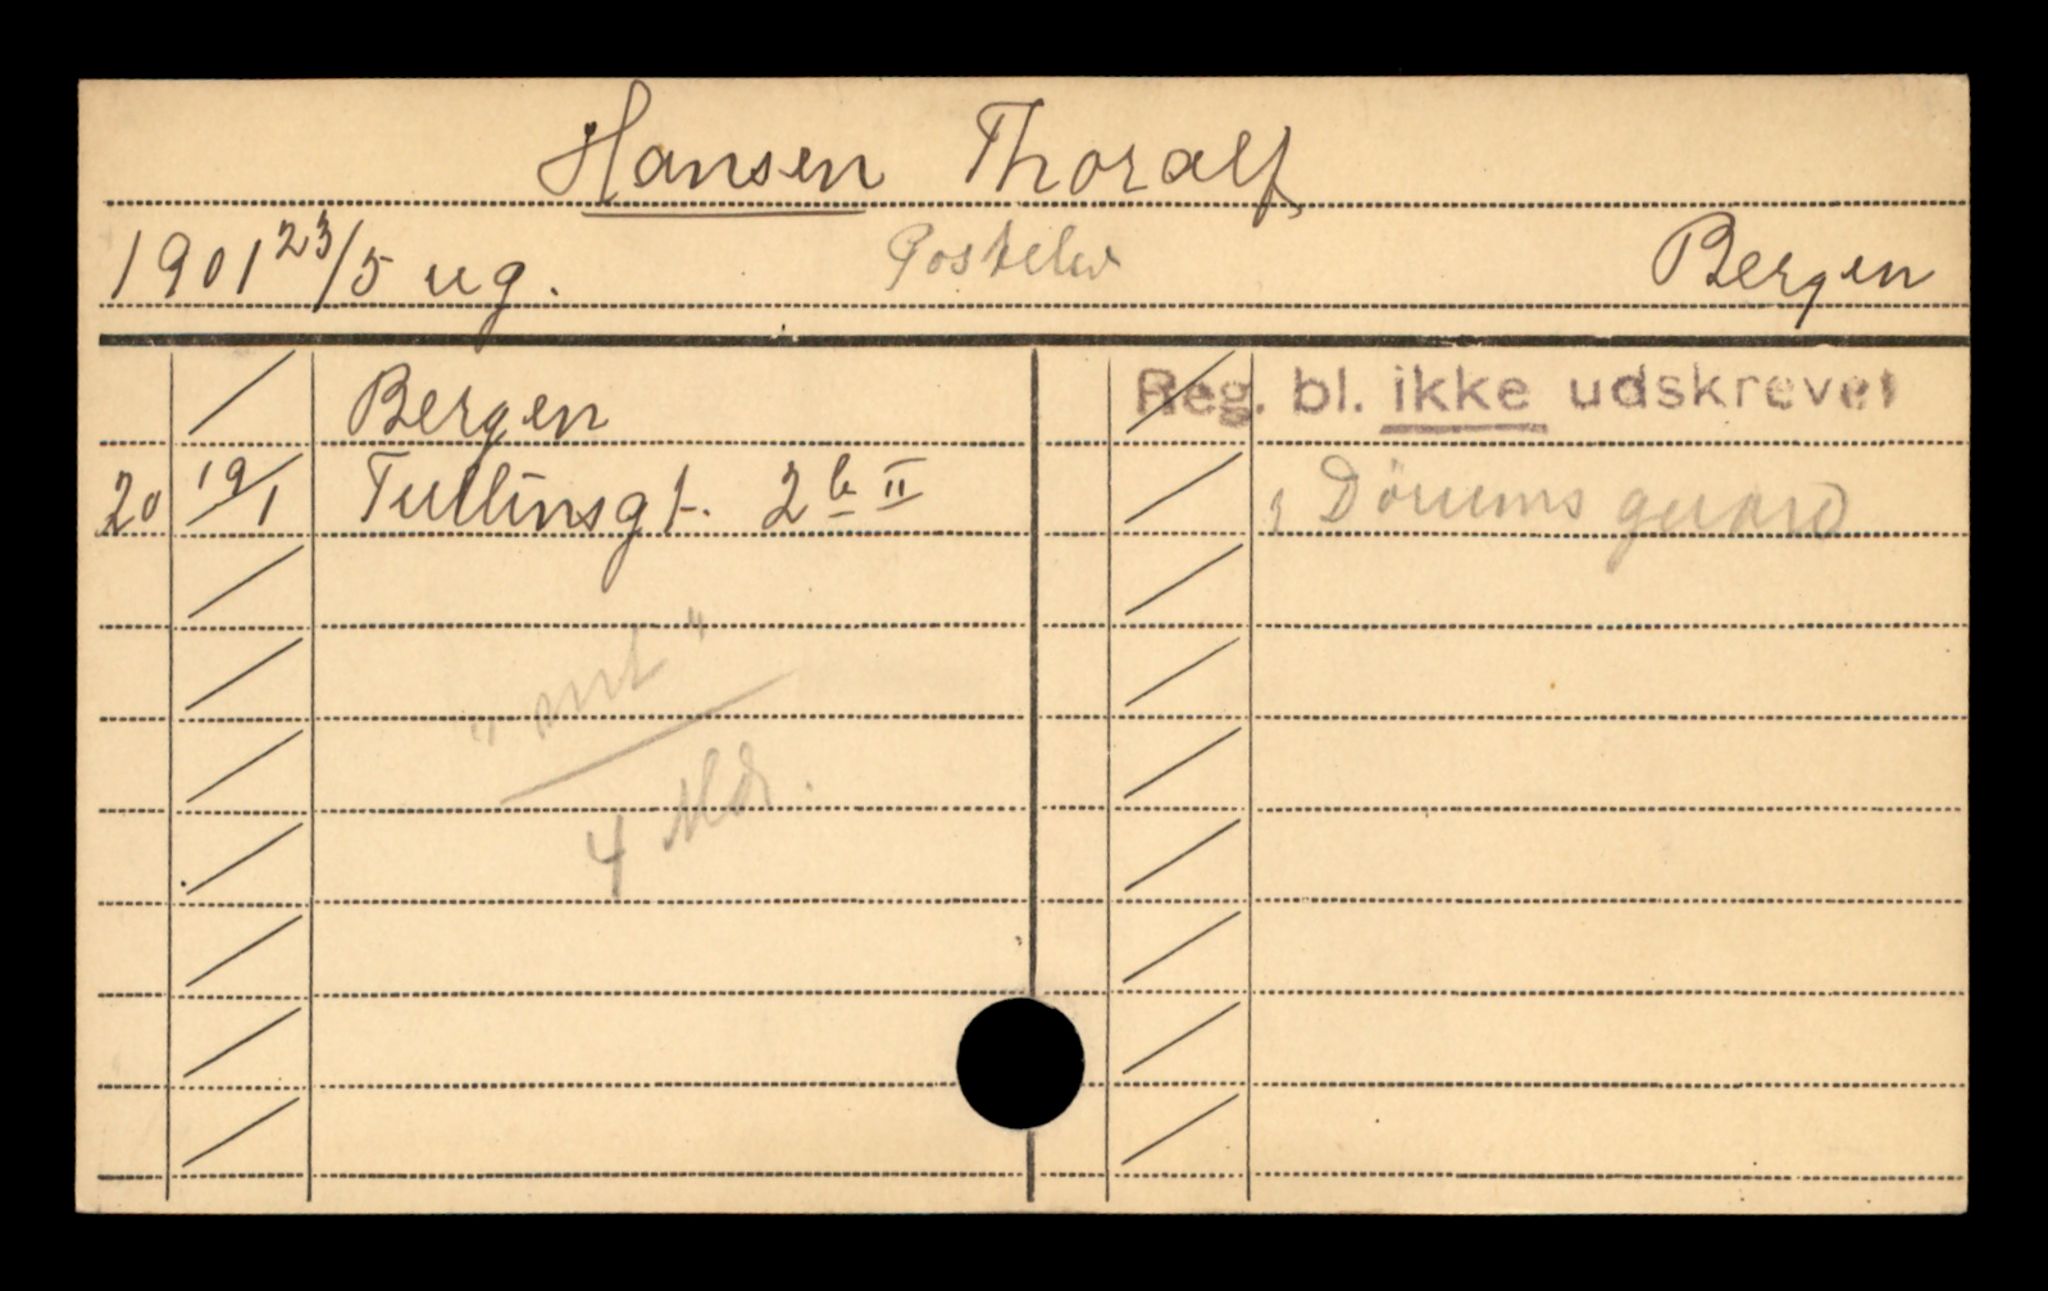 Hansen Thoralf
1901 23/5 ug. Postelev Bergen
Bergen
20 19/1 Tullinsgt. 2 b II
Reg. bl. ikke udskrevet
"mt"
4 Mdr.